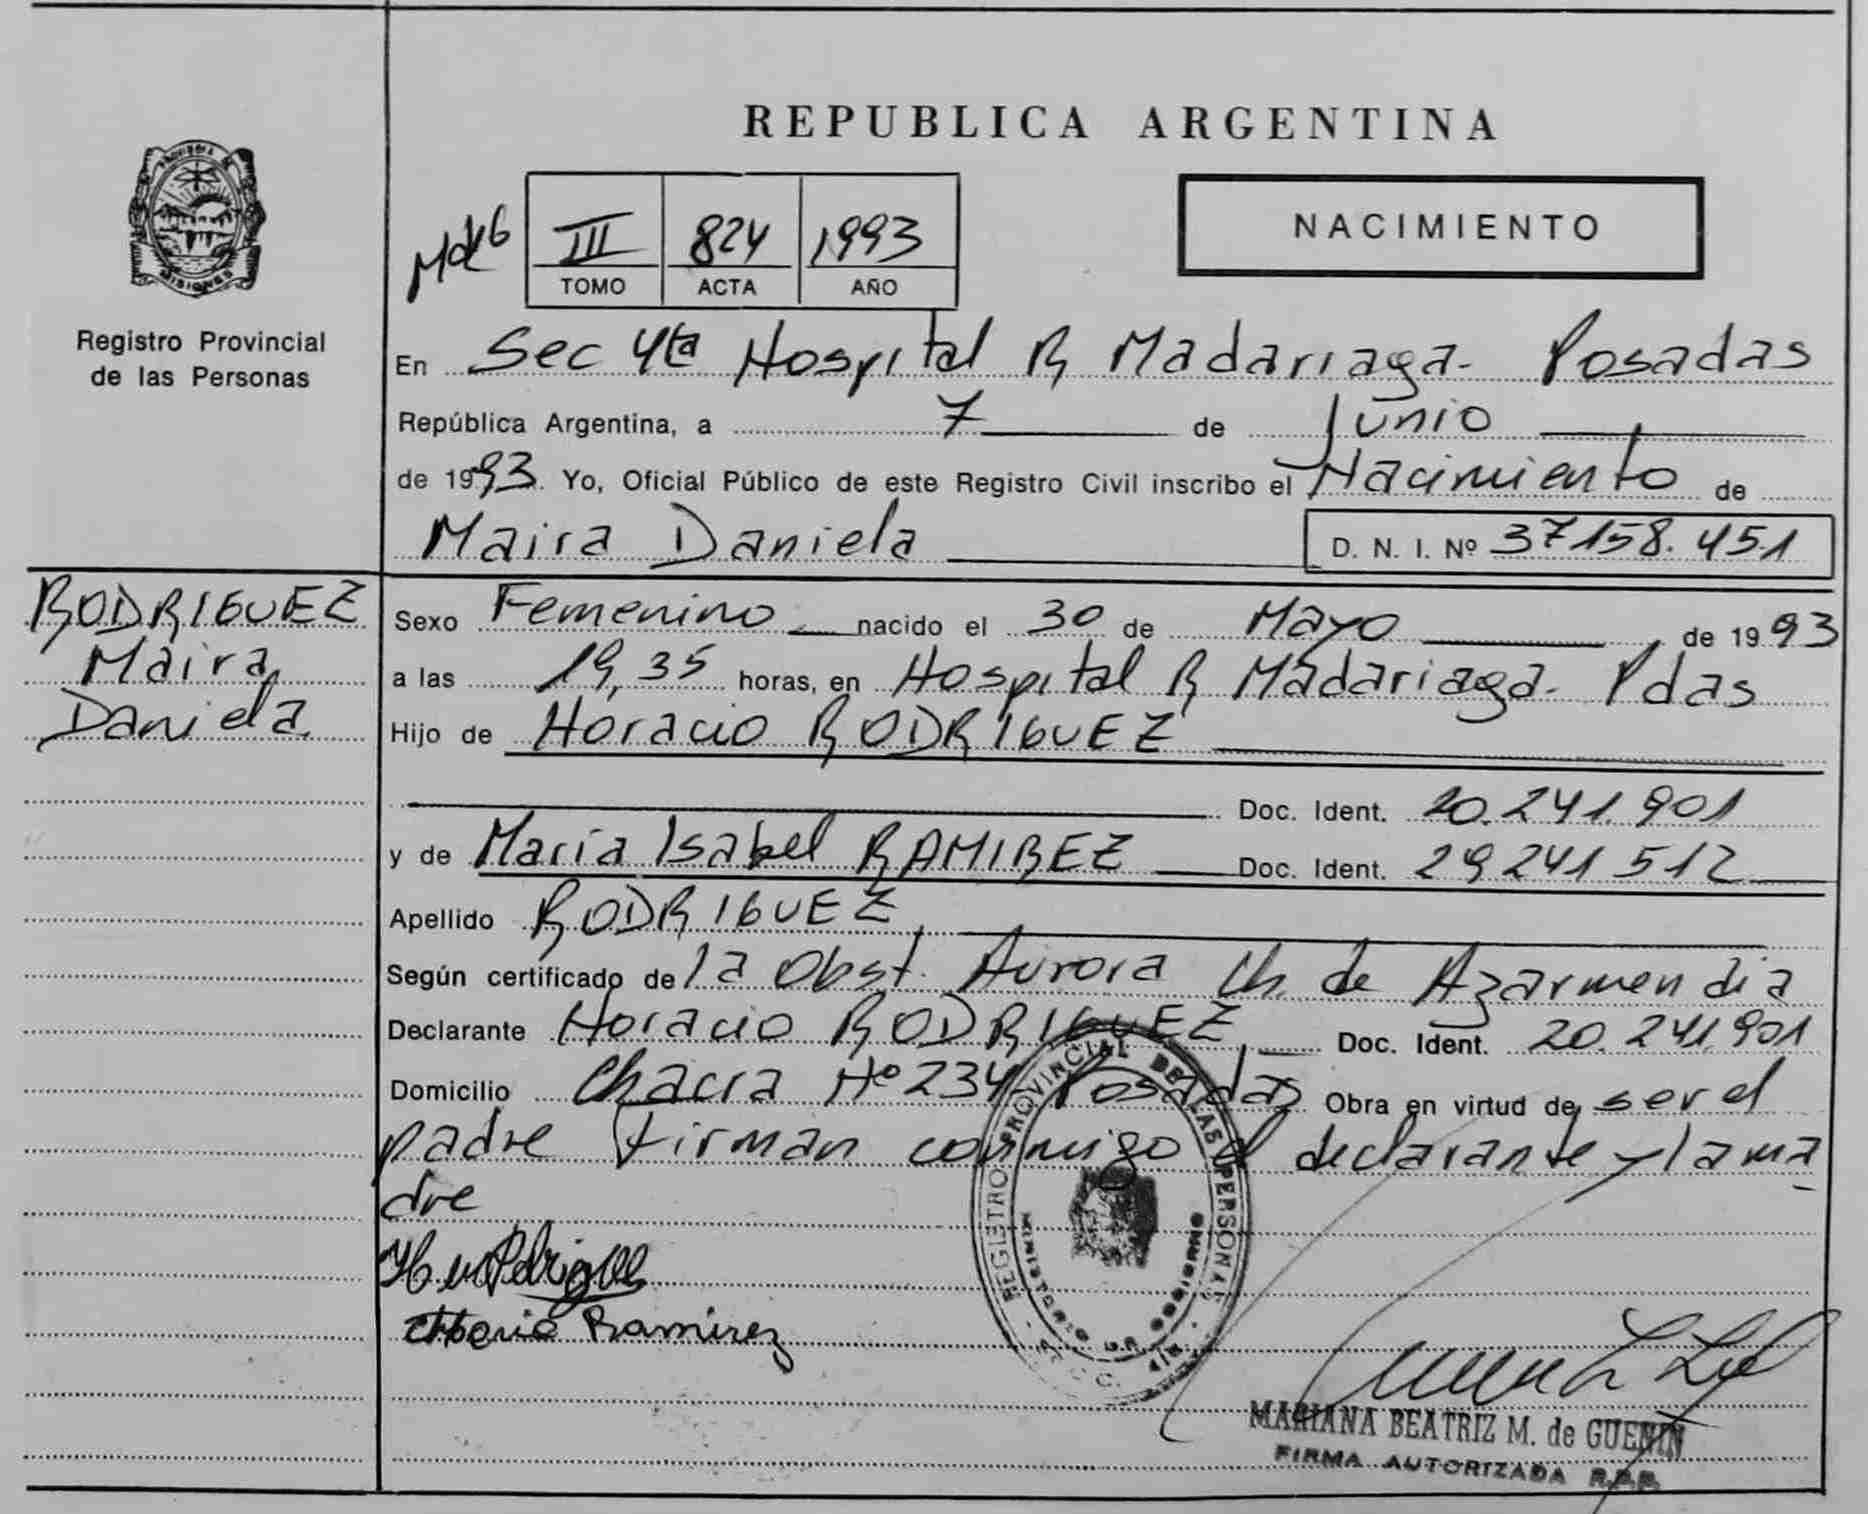 REPUBLICA ARGENTINA
PROVINCIA DE
MISIONES
Registro Provincial
de las Personas
III 824 1993
TOMO ACTA AÑO
NACIMIENTO
En Sec 4ta Hospital R Madariaga- Posadas
República Argentina, a 7 de Junio
de 1993. Yo, Oficial Público de este Registro Civil inscribo el Nacimiento de
Maira Daniela D. N. I. Nº 37158.451
RODRIGUEZ
Maira
Daniela
Sexo Femenino nacido el 30 de Mayo de 1993
a las 19,35 horas, en Hospital R Madariaga- Pdas
Hijo de Horacio RODRIGUEZ
Doc. Ident. 20.241.901
y de María Isabel RAMIREZ Doc. Ident. 29 241 512
Apellido RODRIGUEZ
Según certificado de la Obst. Aurora Ch. de Azarmendia
Declarante Horacio RODRIGUEZ Doc. Ident. 20.241.901
Domicilio Chacra Nº 234 Posadas Obra en virtud de ser el
padre Firman conmigo el declarante y la ma
dre
Maria Ramirez
REGISTRO PROVINCIAL DE LAS PERSONAS
MINISTERIO DE GOBIERNO
MARIANA BEATRIZ M. de GUENIN
FIRMA AUTORIZADA R.P.P.